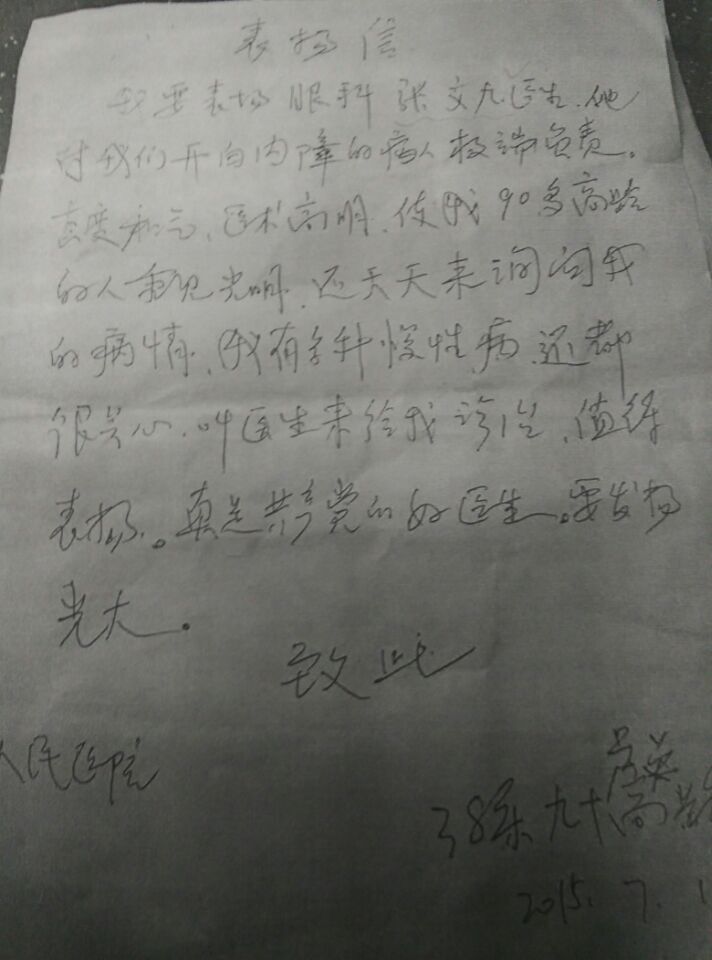 表扬信
我要表扬眼科张文九医生.他
对我们开白内障的病人极端负责。
态度和气、医术高明.使我90多高龄
的人重见光明.还天天来询问我
的病情、我有多种慢性病.还都
很关心.叫医生来给我诊治、值得
表扬。真是共产党的好医生。要发扬
光大。
致此
人民医院
38床九十高龄
2015.7.1